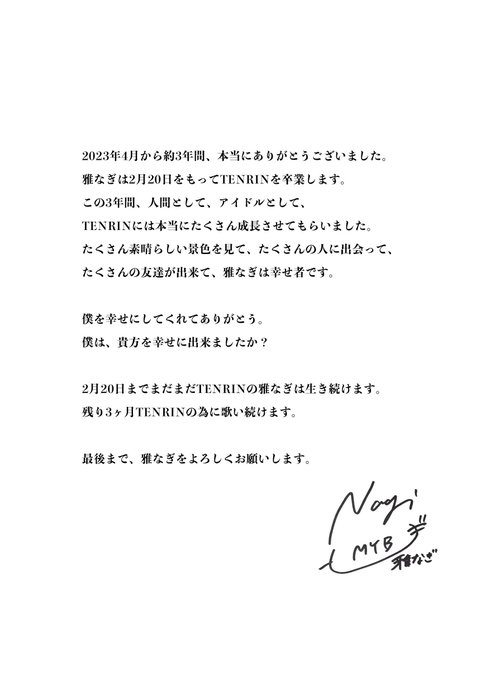 2023年4月から約3年間、本当にありがとうございました。
雅なぎは2月20日をもってTENRINを卒業します。
この3年間、人間として、アイドルとして、
TENRINには本当にたくさん成長させてもらいました。
たくさん素晴らしい景色を見て、たくさんの人に出会って、
たくさんの友達が出来て、雅なぎは幸せ者です。
僕を幸せにしてくれてありがとう。
僕は、貴方を幸せに出来ましたか？
2月20日までまだまだTENRINの雅なぎは生き続けます。
残り3ヶ月TENRINの為に歌い続けます。
最後まで、雅なぎをよろしくお願いします。
Nagi
MYB
雅なぎ